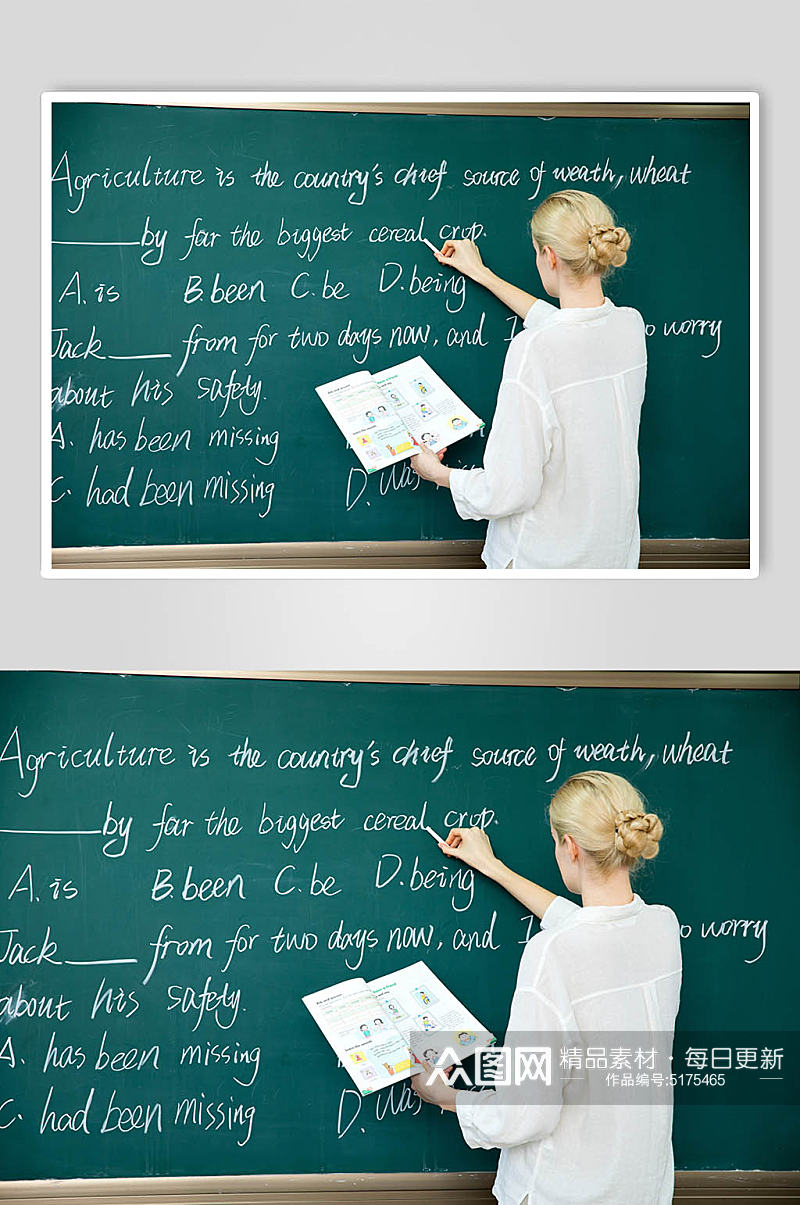 Agriculture is the country's chief source of weath, wheat
______by far the biggest cereal crop.
A. is B. been C. be D. being
Jack_____ from for two days now, and I o worry
about his safety.
A. has been missing
C. had been missing D. Was
Agriculture is the country's chief source of weath, wheat
______by far the biggest cereal crop.
A. is B. been C. be D. being
Jack_____ from for two days now, and I o worry
about his safety.
A. has been missing
C. had been missing D. Was
众图网 精品素材·每日更新
作品编号:5175465